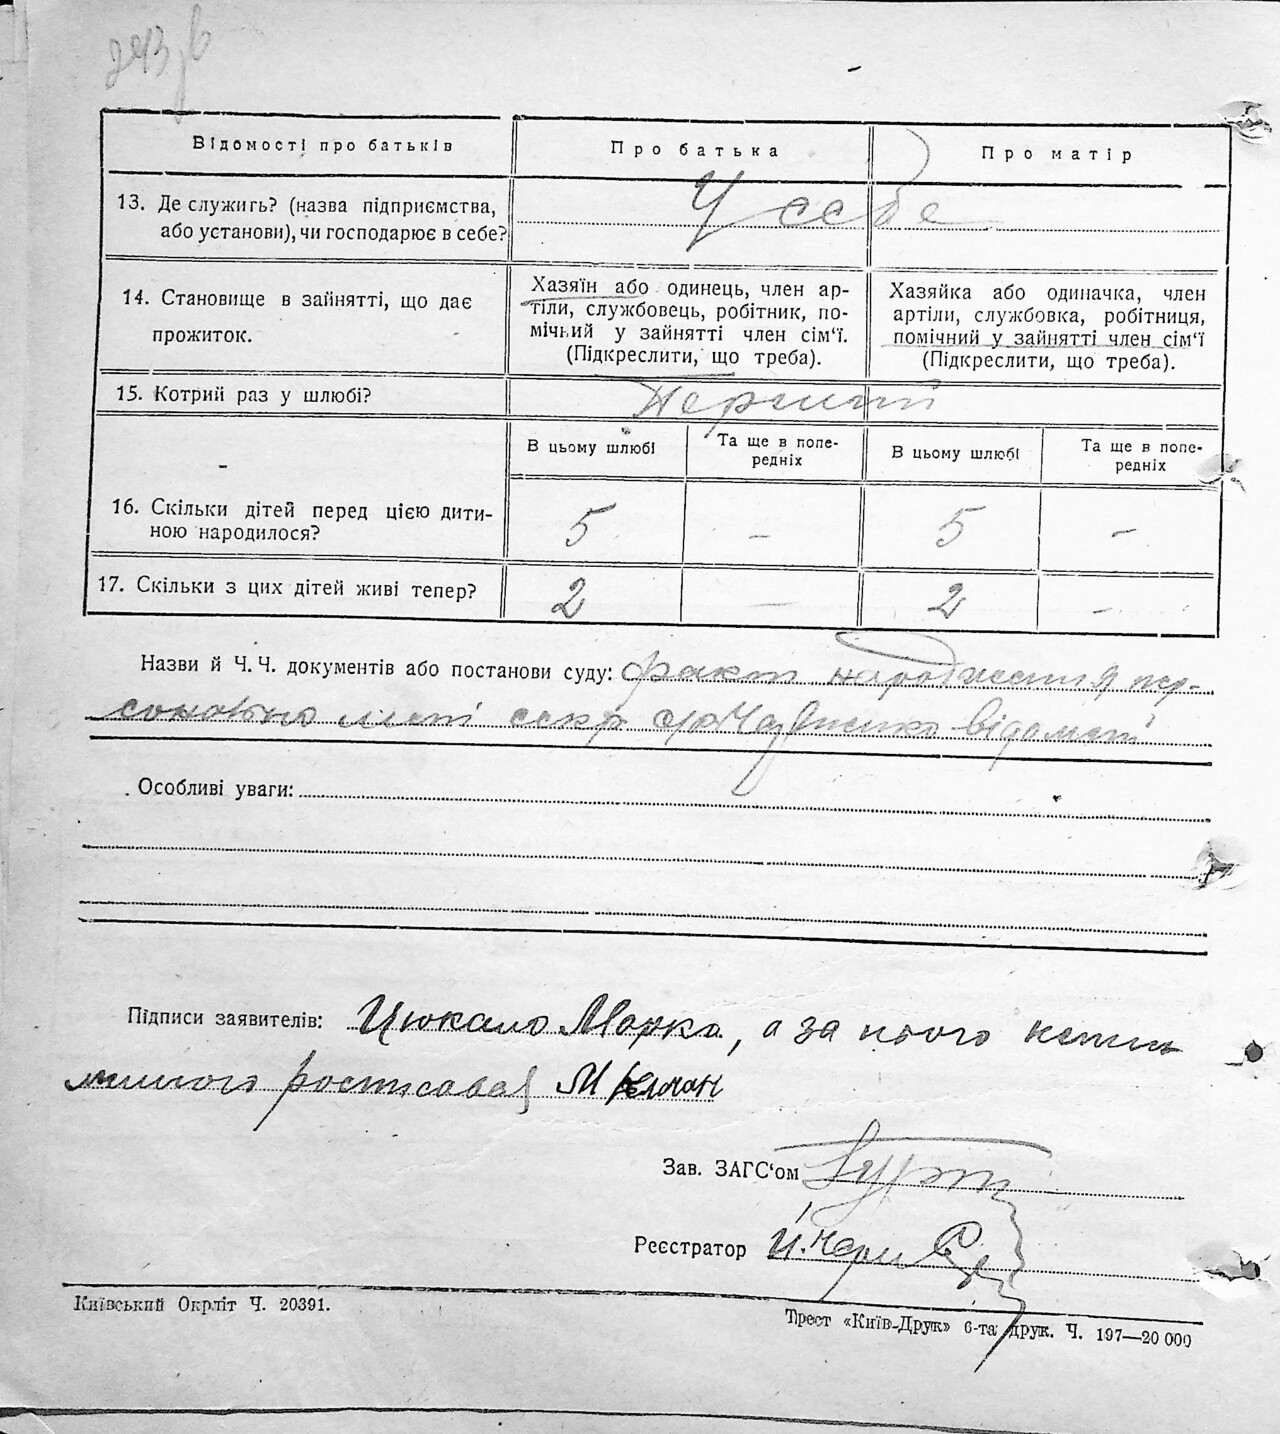 Відомості про батьків
Про батька
Про матір
13. Де служить? (назва підприємства,
або установи), чи господарює в себе?
У себе
14. Становище в зайнятті, що дає
прожиток.
Хазяїн або одинець, член ар-
тіли, службовець, робітник, по-
мічний у зайнятті член сім‘ї.
(Підкреслити, що треба).
Хазяйка або одиначка, член
артіли, службовка, робітниця,
помічний у зайнятті член сім‘ї
(Підкреслити, що треба).
15. Котрий раз у шлюбі?
Перший
В цьому шлюбі
Та ще в попе-
редніх
В цьому шлюбі
Та ще в попе-
редніх
16. Скільки дітей перед цією дити-
ною народилося?
5 – 5 –
17. Скільки з цих дітей живі тепер?
2 – 2 –
Назви й Ч. Ч. документів або постанови суду: факт народження пер-
сонально мені секр с/р відомий
Особливі уваги:
Підписи заявителів: Цюкало Марко, а за нього
росписався
Зав. ЗАГС‘ом
Реєстратор
Київський Окрліт Ч. 20391.
Трест «Київ-Друк» 6-та друк. Ч. 197—20 000